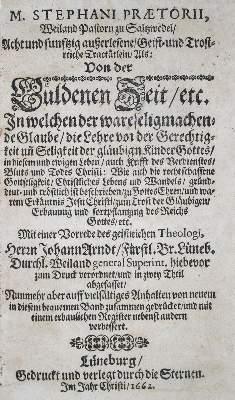 M. STEPHANI PRÆTORII,
Weiland Pastorn zu Saltzwedel/
Acht und funfzig außerlesene/Geist- und Trost-
reiche Tractätlein/ Als:
Von der
Güldenen Zeit/ etc.
In welchen der ware seligmachen-
de Glaube/ die Lehre von der Gerechtig-
keit uñ Seligkeit der gläubigen Kinder Gottes/
in diesem und ewigen Leben/ auch Krafft des Verdienstes/
Bluts und Todes Christi: Wie auch die rechtschaffene
Gottseligkeit/ Christliches Lebens und Wandels/ gründ-
deut- und tröstlich ist beschrieben/ zu Gottes Ehren/ und wa-
rem Erkäntnis Jesu Christi/ zum Trost der Gläubigen/
Erbauung und fortpflanzung des Reichs
Gottes/ etc.
Mit einer Vorrede des geistreichen Theologi,
Herrn Johann Arndt/ Fürstl. Br. Lüneb.
Durchl. Weiland general Superint. hiebevor
zum Druck verordnet/ und in zwey Theil
abgefasset/
Nunmehr aber auff vielfältiges Anhalten von neuem
in diesem bequemen Band zusammen gedrücket/ und mit
einem erbaulichen Register nebenst andern
verbessert.
Lüneburg/
Gedruckt und verlegt durch die Sternen.
Im Jahr Christi/ 1662.